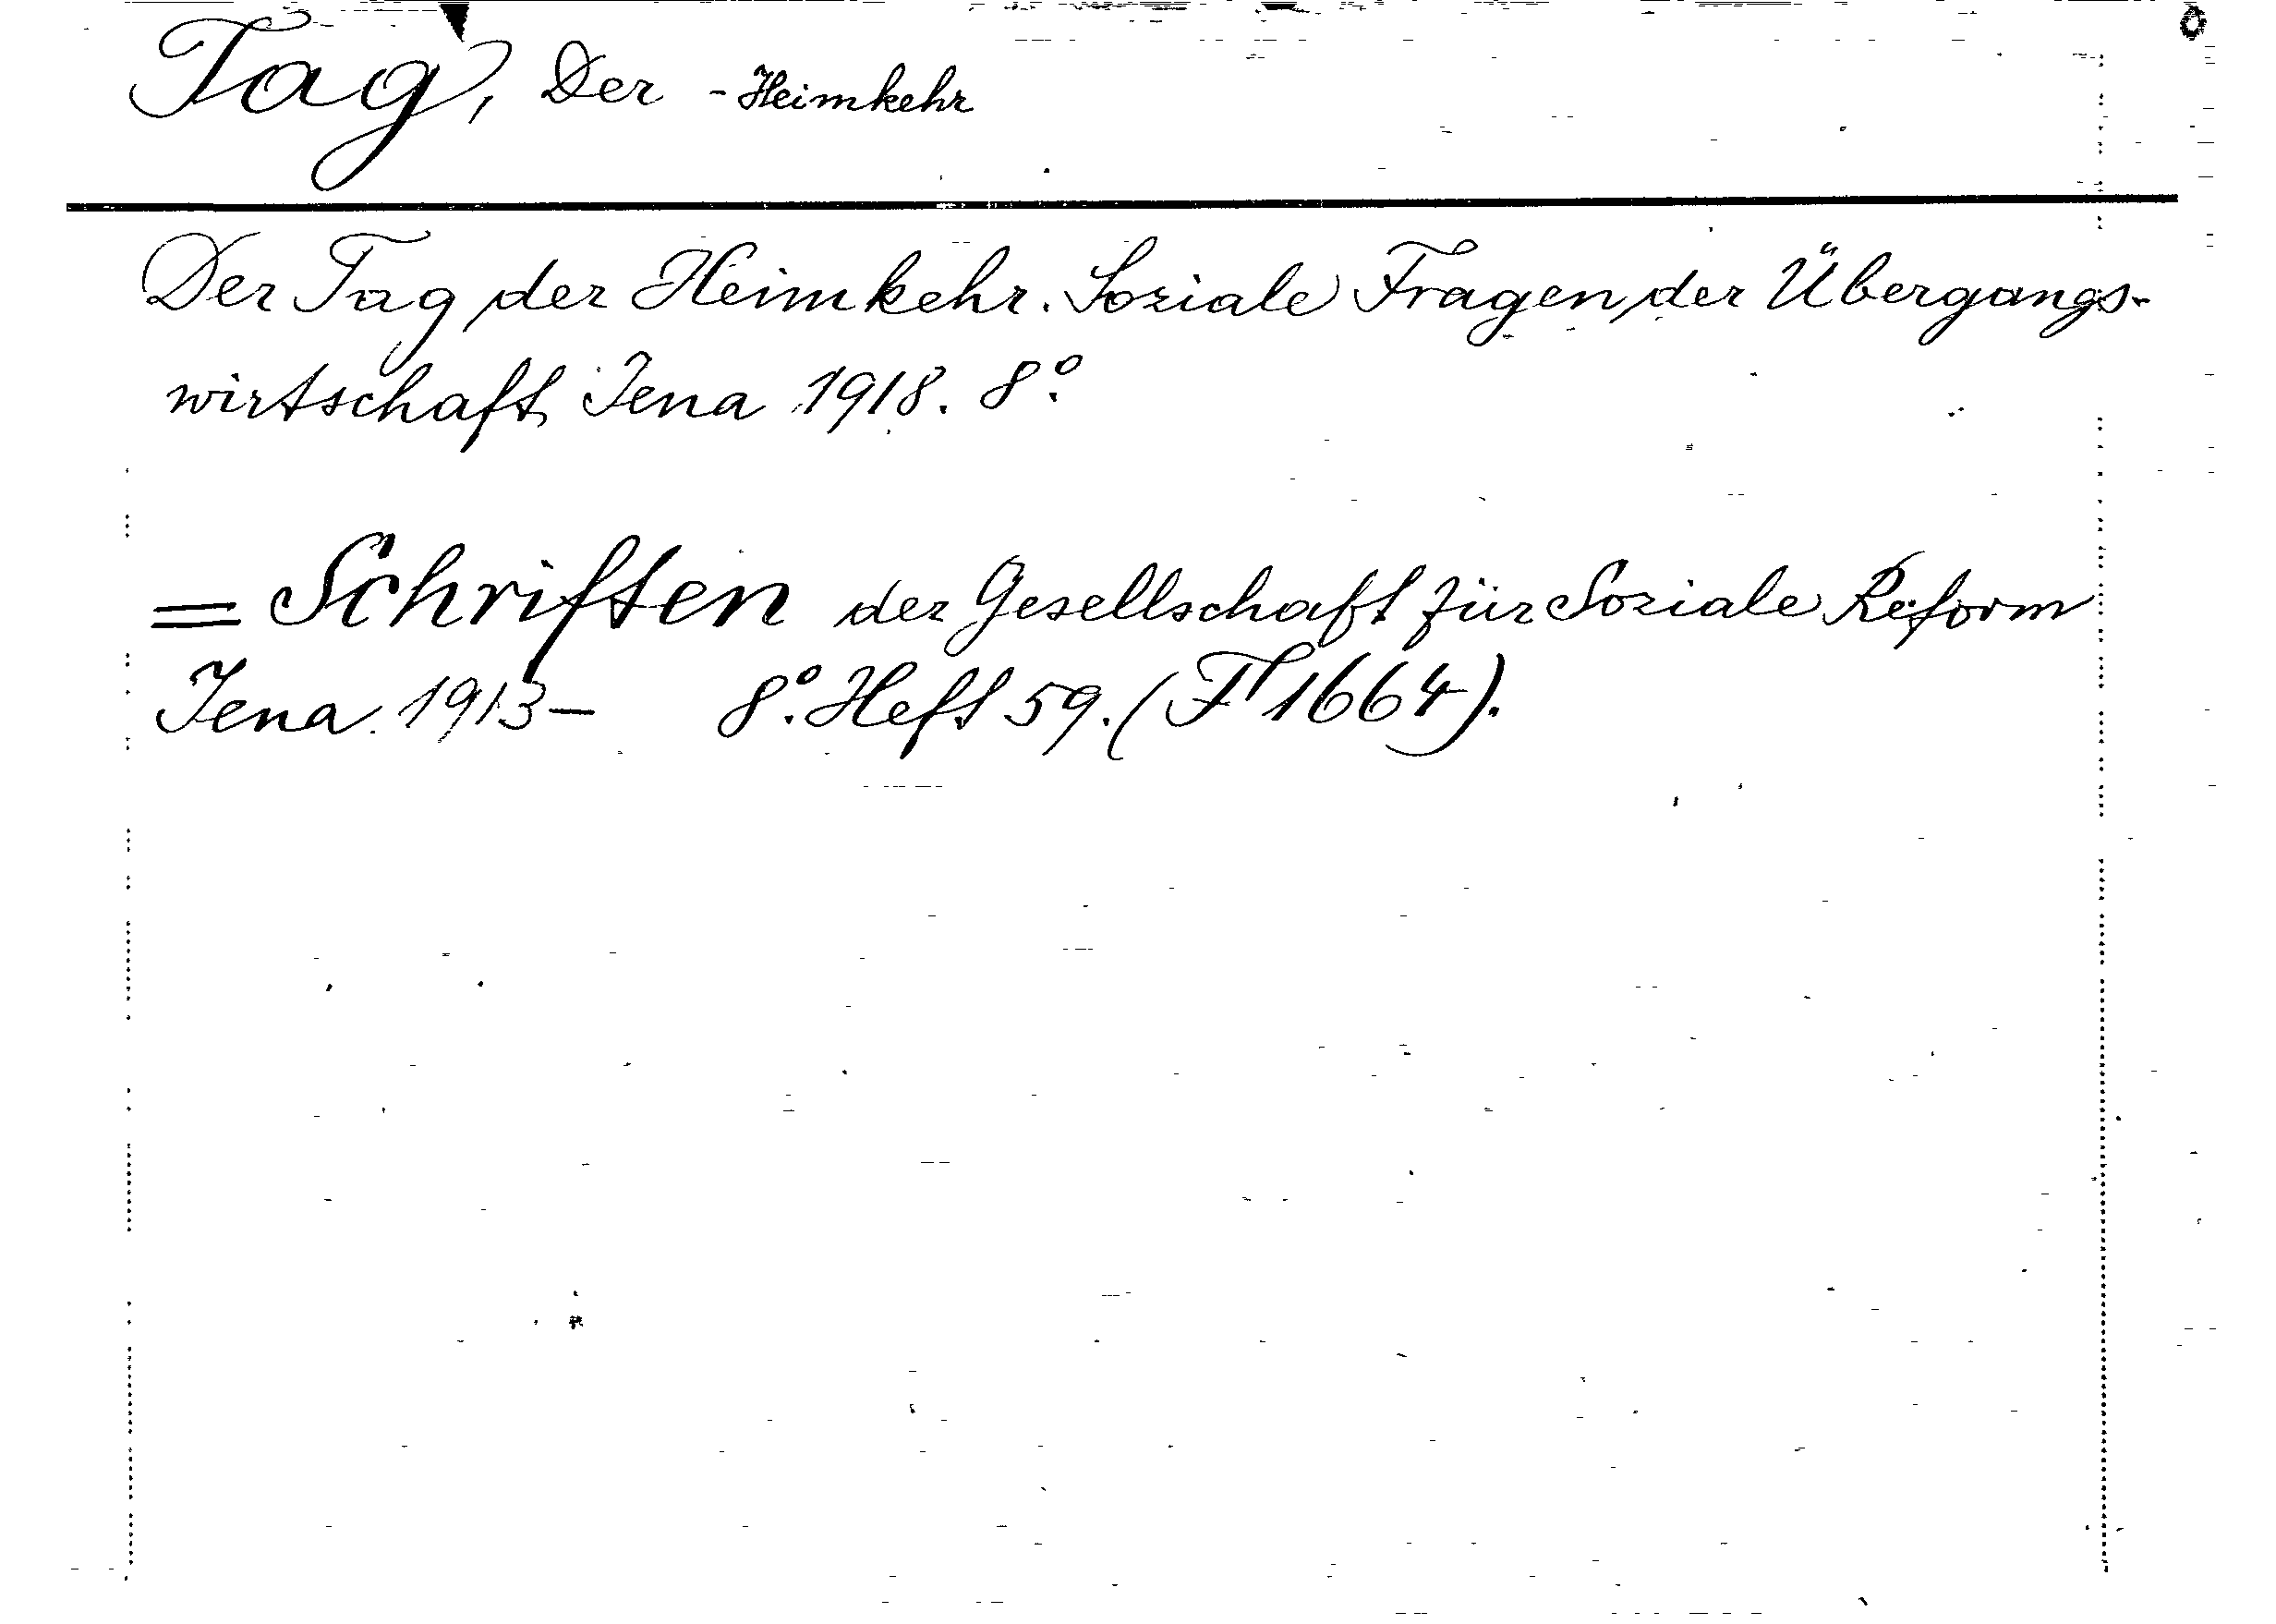 Tag, Der - Heimkehr
Der Tag der Heimkehr. Soziale Fragen der Übergangs-
wirtschaft Jena 1918. 8°.
= Schriften der Gesellschaft für Soziale Reform
Jena. 1913- 8°. Heft 59. (F 1664).